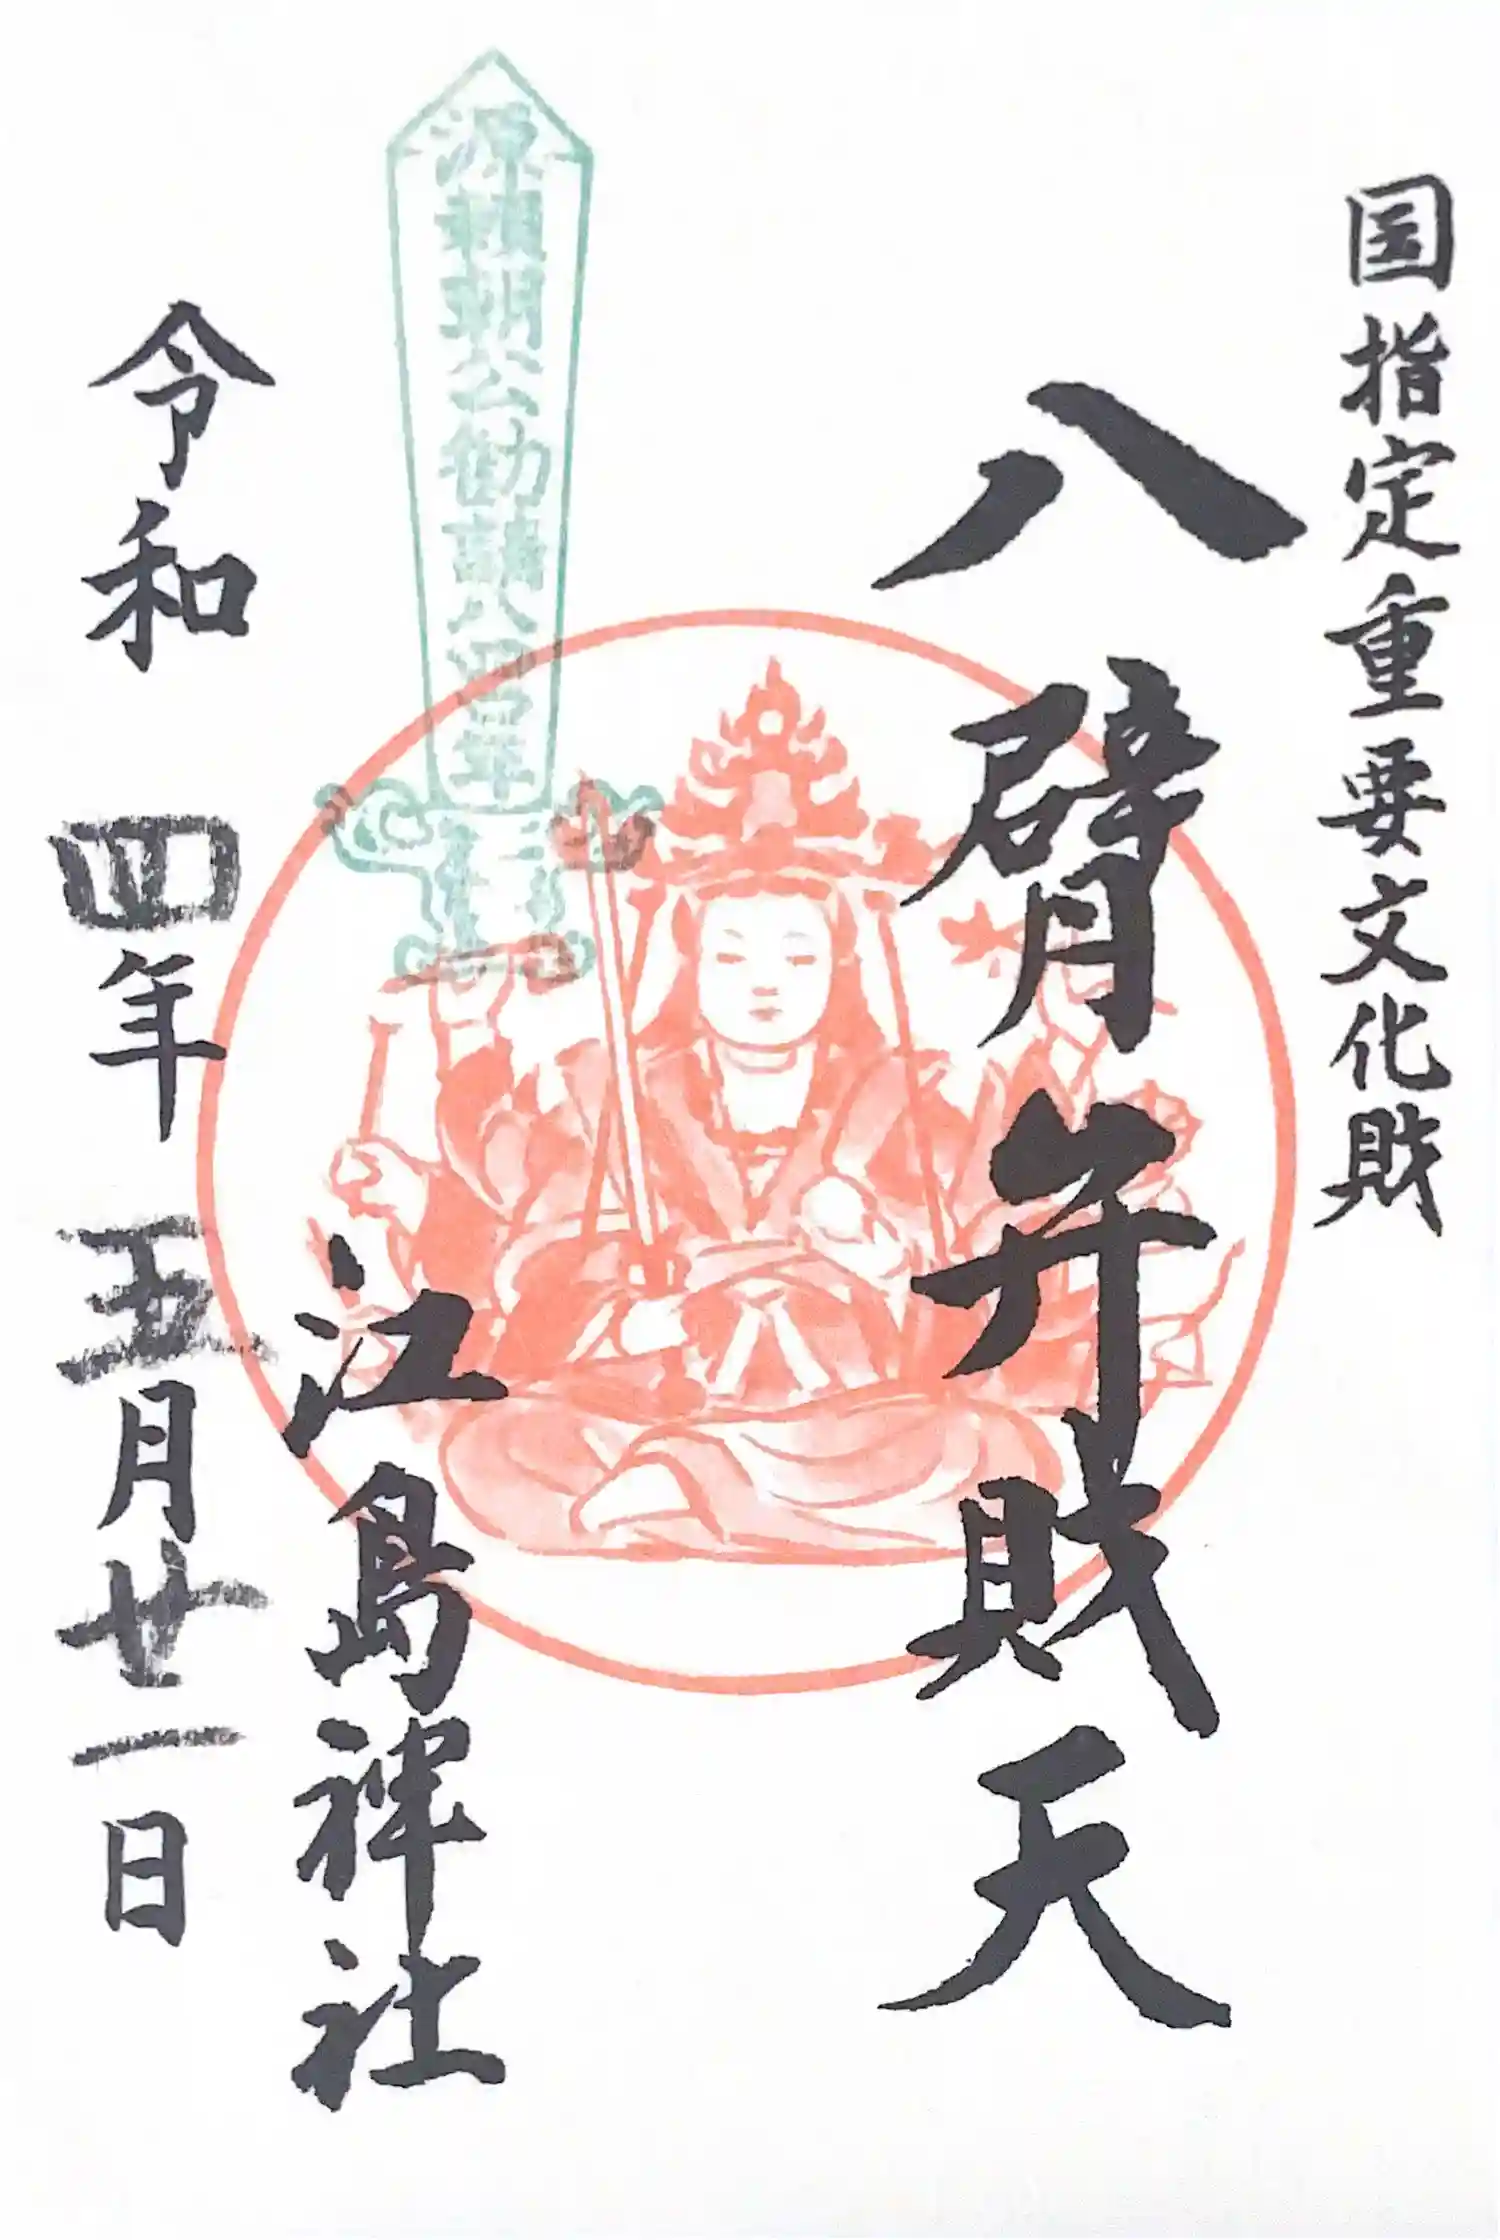 国指定重要文化財
八臂弁財天
源頼朝公勧請八四〇年
江島神社
令和四年五月廿一日